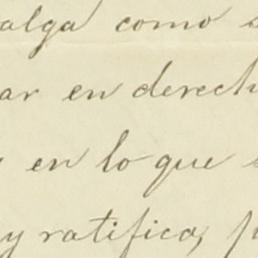 alga como
ar en derech
en lo que
y ratifica,